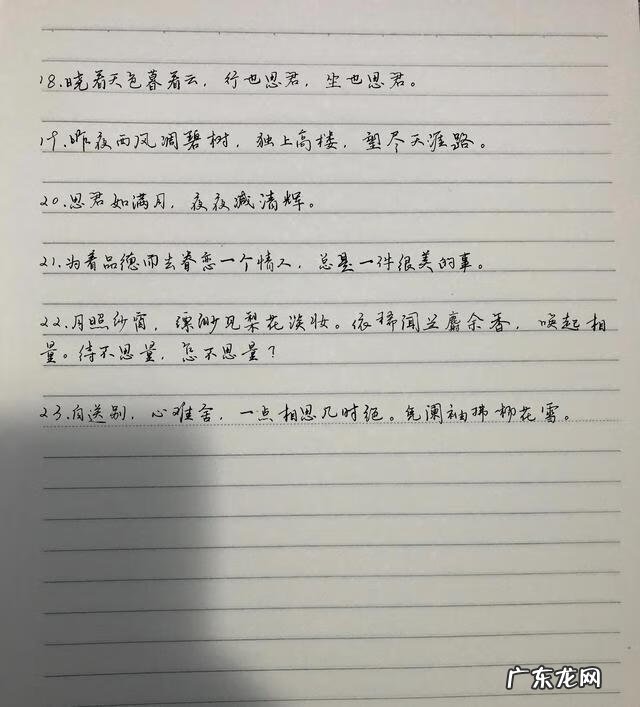 18.晓看天色暮看云，行也思君，坐也思君。
19.昨夜西风凋碧树，独上高楼，望尽天涯路。
20.思君如满月，夜夜减清辉。
21.为着品德而去眷恋一个情人，总是一件很美的事。
22.月照纱窗，缥缈见梨花淡妆。依稀闻兰麝余香，唤起相
量。待不思量，怎不思量？
23.自送别，心难舍，一点相思几时绝。凭阑袖拂杨花雪。
广东龙网